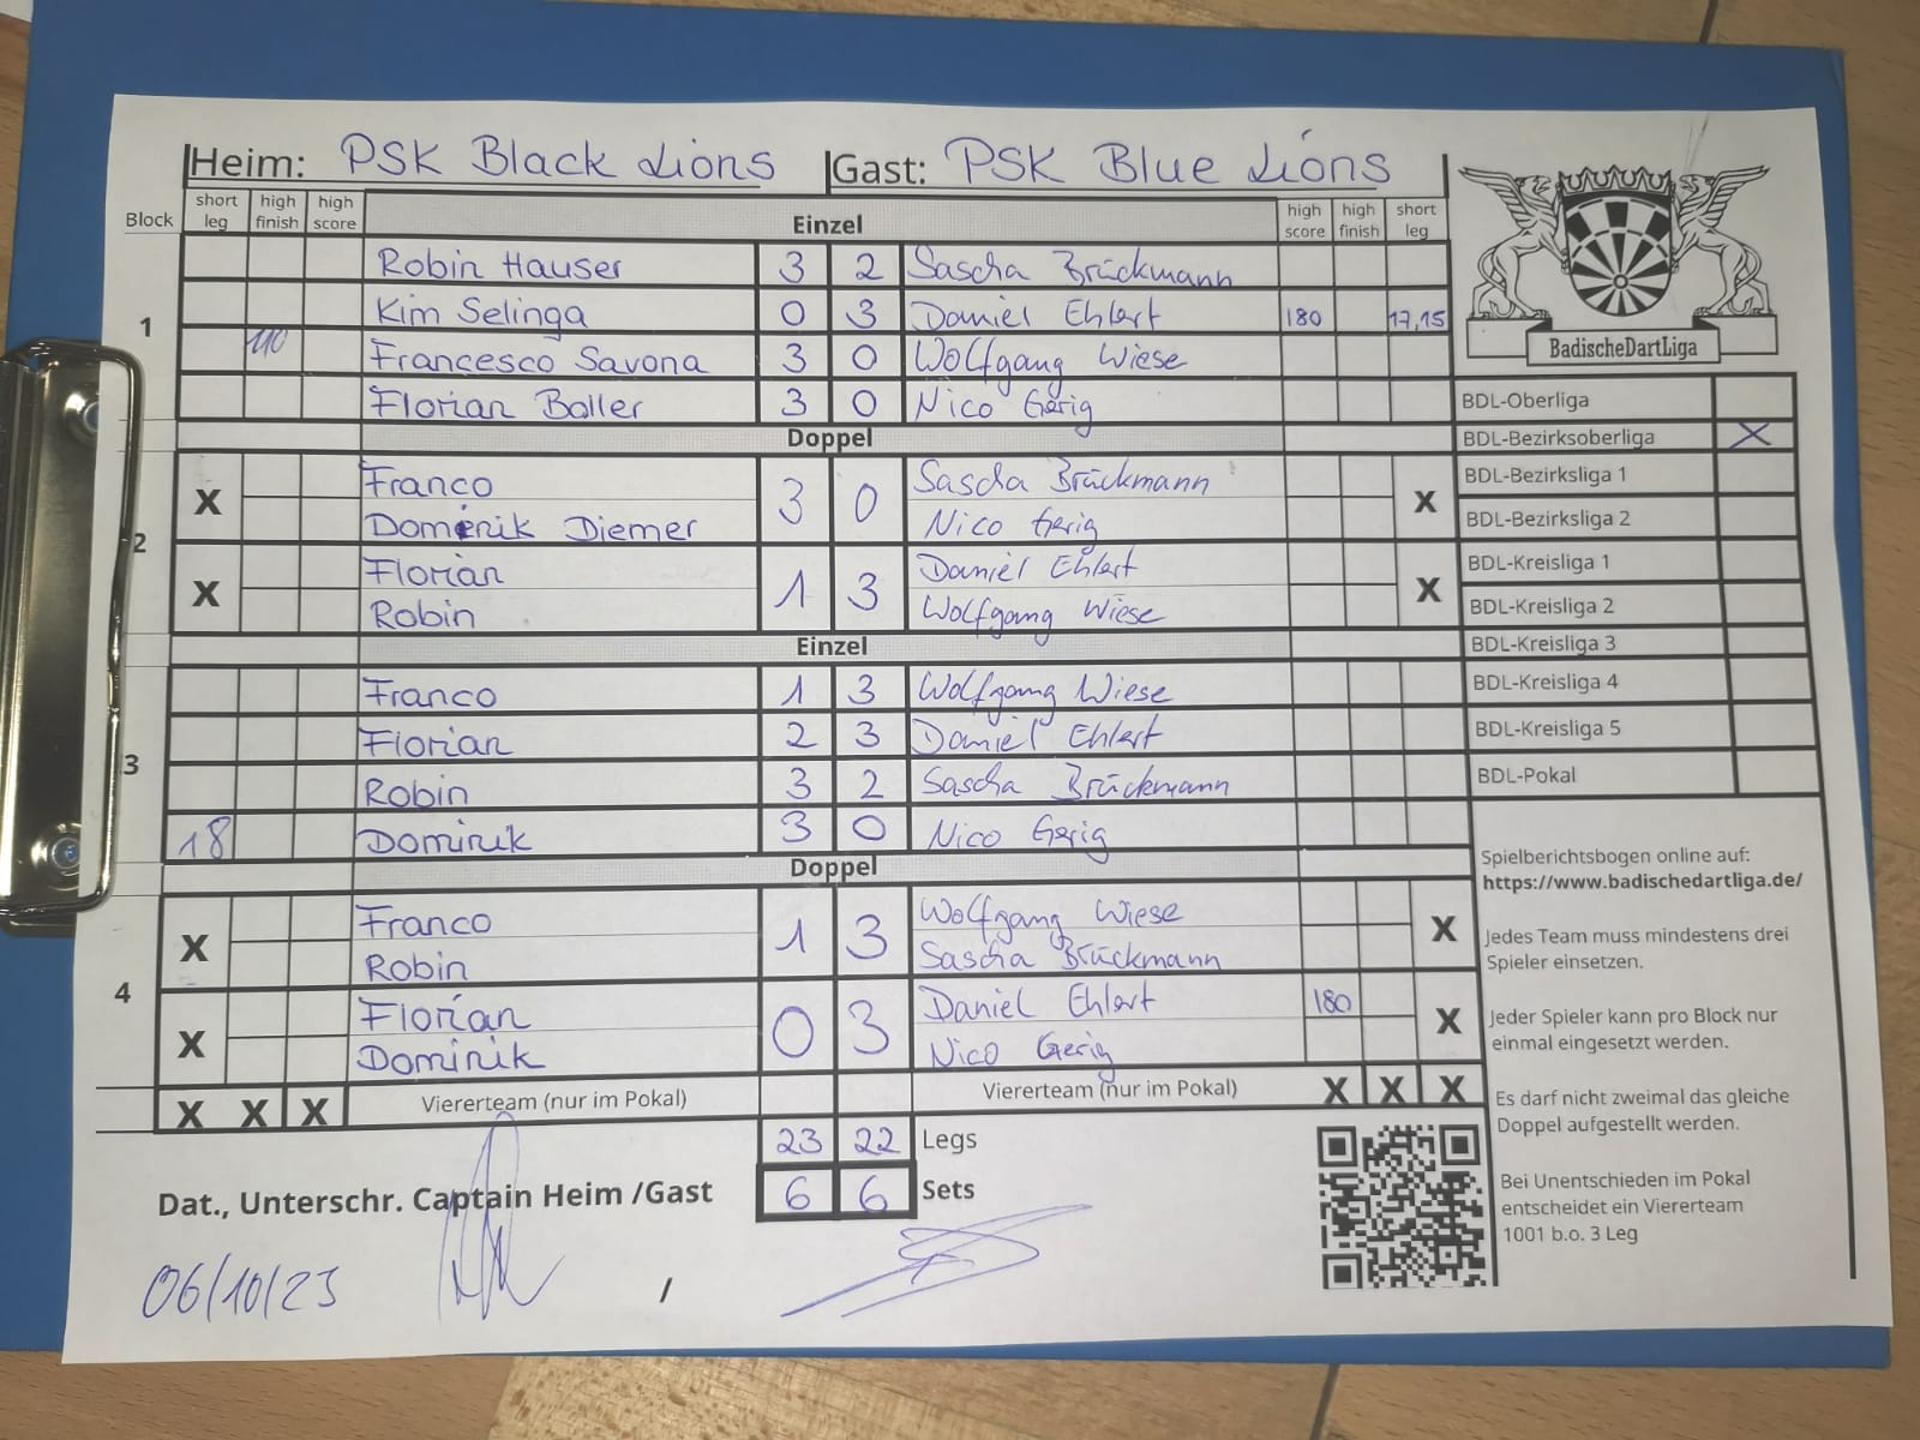 Heim: PSK Black Lions Gast: PSK Blue Lions
Block short leg high finish high score Einzel high score high finish short leg
1
Robin Hauser 3 2 Sascha Brückmann
Kim Selinga 0 3 Daniel Ehlert 180 17,15
110 Francesco Savona 3 0 Wolfgang Wiese
Florian Boller 3 0 Nico Gerig
Doppel
2
X Franco 3 0 Sascha Brückmann X
Dominik Diemer Nico Gerig
X Florian 1 3 Daniel Ehlert X
Robin Wolfgang Wiese
Einzel
3
Franco 1 3 Wolfgang Wiese
Florian 2 3 Daniel Ehlert
Robin 3 2 Sascha Brückmann
18 Dominik 3 0 Nico Gerig
Doppel
4
X Franco 1 3 Wolfgang Wiese X
Robin Sascha Brückmann
X Florian 0 3 Daniel Ehlert 180 X
Dominik Nico Gerig
X X X Viererteam (nur im Pokal) Viererteam (nur im Pokal) X X X
23 22 Legs
Dat., Unterschr. Captain Heim /Gast 6 6 Sets
06/10/23 /
BadischeDartLiga
BDL-Oberliga
BDL-Bezirksoberliga X
BDL-Bezirksliga 1
BDL-Bezirksliga 2
BDL-Kreisliga 1
BDL-Kreisliga 2
BDL-Kreisliga 3
BDL-Kreisliga 4
BDL-Kreisliga 5
BDL-Pokal
Spielberichtsbogen online auf:
https://www.badischedartliga.de/
Jedes Team muss mindestens drei
Spieler einsetzen.
Jeder Spieler kann pro Block nur
einmal eingesetzt werden.
Es darf nicht zweimal das gleiche
Doppel aufgestellt werden.
Bei Unentschieden im Pokal
entscheidet ein Viererteam
1001 b.o. 3 Leg